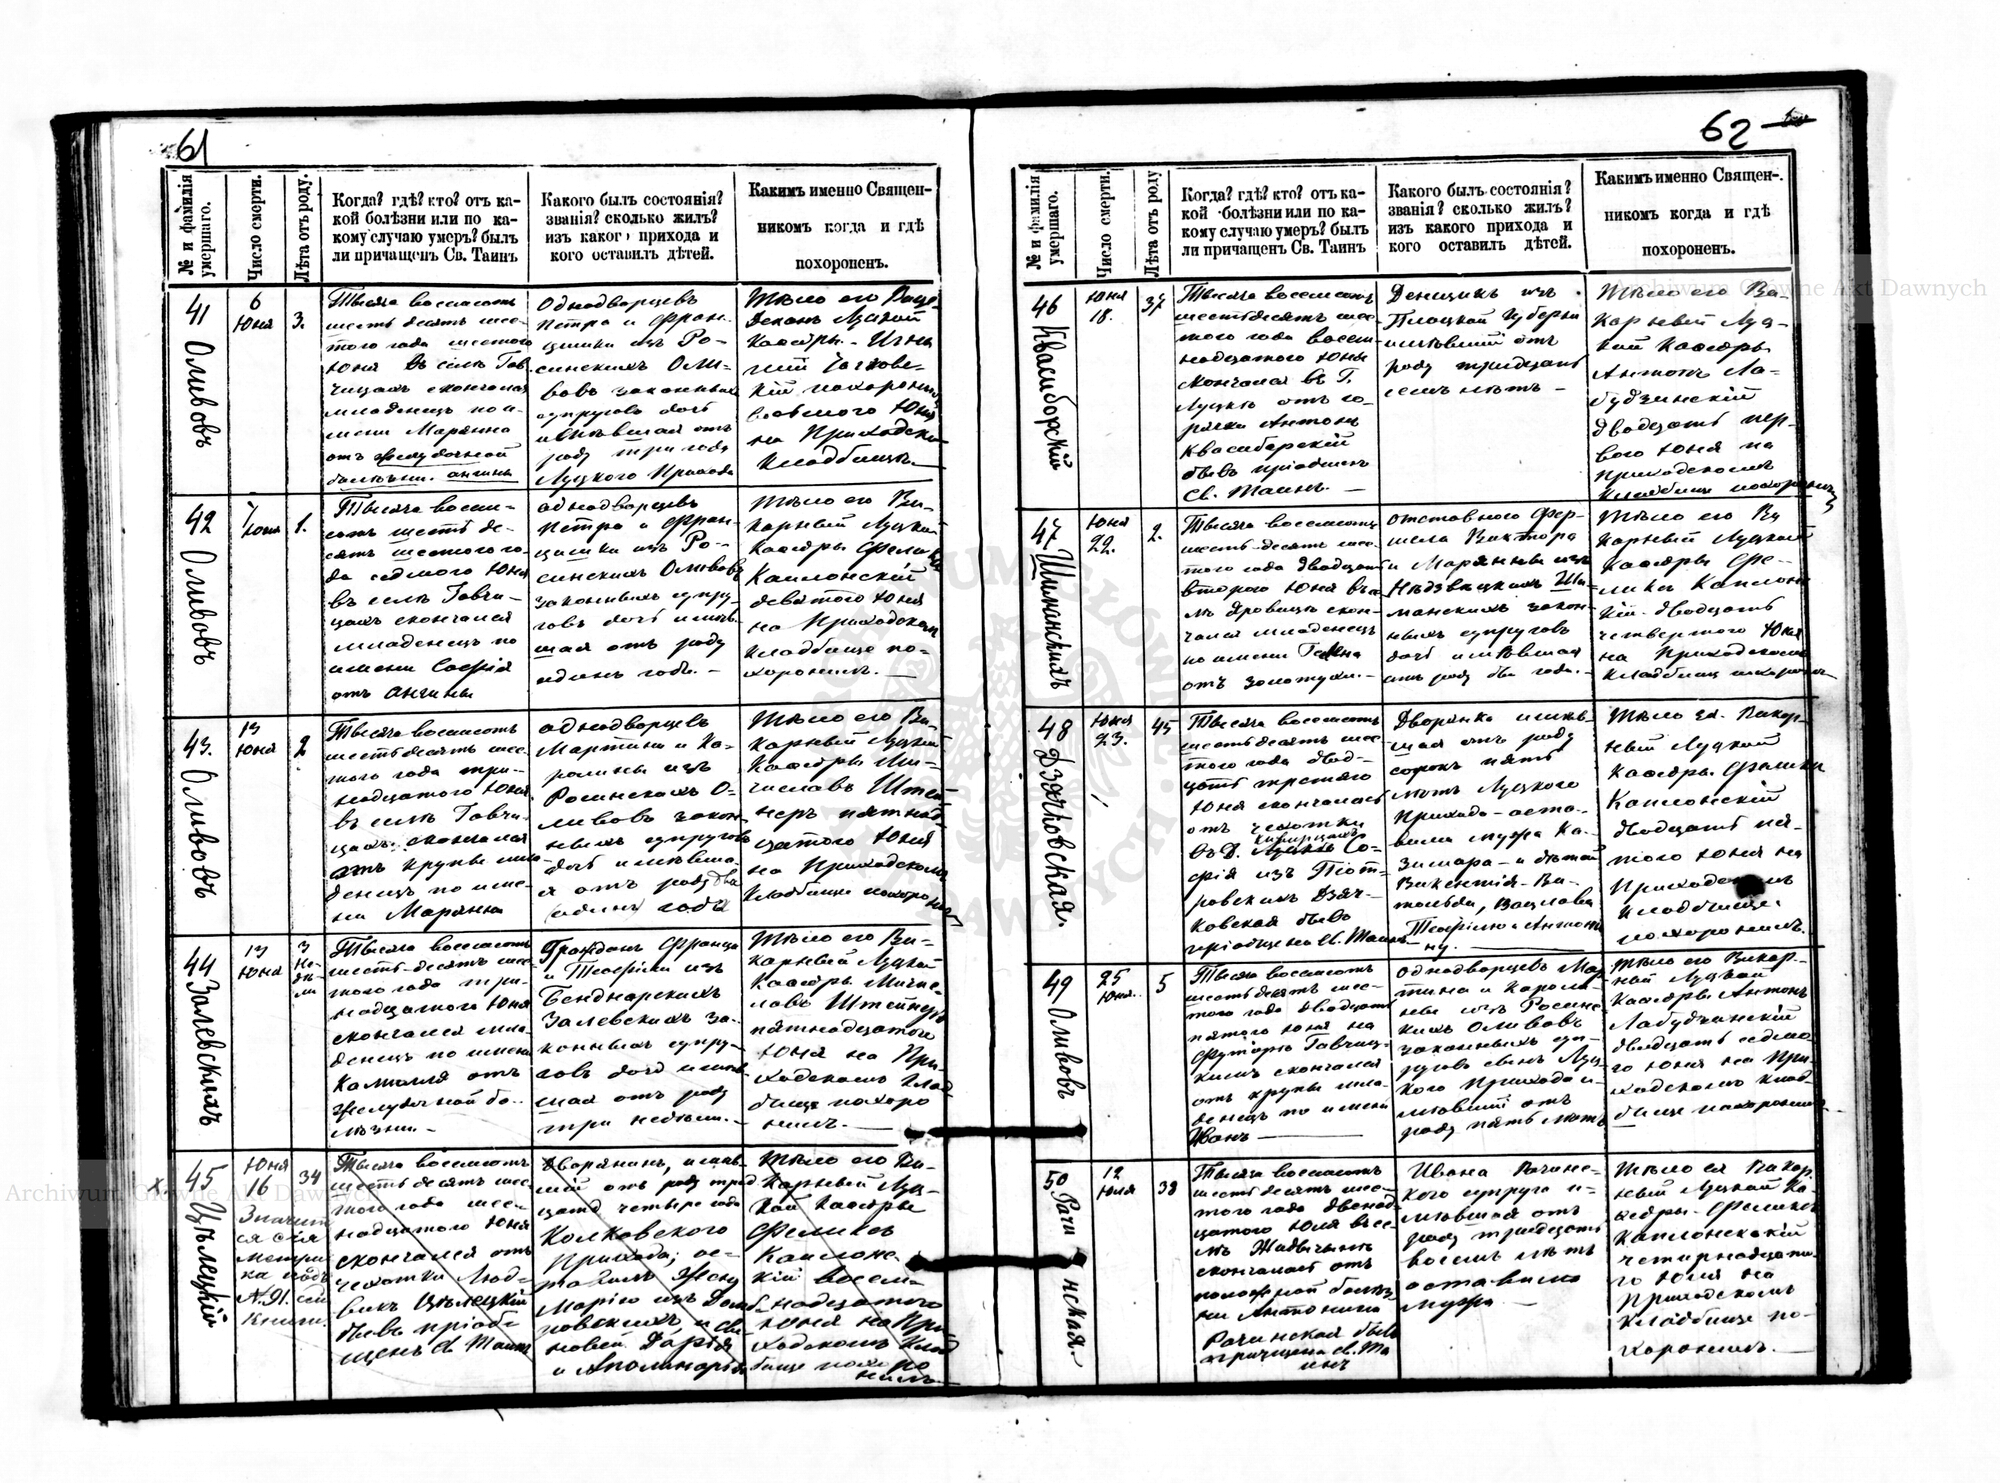 61
№ и фамилія умершаго.
Число смерти.
Лѣта отъ роду.
Когда? гдѣ? кто? отъ ка-
кой болѣзни или по ка-
кому случаю умеръ? былъ
ли причащенъ Св. Таинъ
Какого былъ состоянія?
званія? сколько жилъ?
изъ какого прихода и
кого оставилъ дѣтей.
Какимъ именно Священ-
никомъ когда и гдѣ
похороненъ.
41 Оливовъ
6
Юня
3.
Тысяча восемьсотъ
шестьдесятъ шес-
того года шестого
Юня въ селѣ Гав-
чицахъ скончался
младенецъ по и-
мени Марянна
отъ желудочной
болѣзни. ангины
Однодворцевъ
Петра и Фран-
цишки изъ Ро-
синскихъ Оли-
вовъ законныхъ
супруговъ дочь
имѣвшая отъ
роду три года
Луцкого Прихода
Тѣло его
Деканъ Луцкой
Кафедры
кій похоронилъ
восьмого Юня
на Приходском
Кладбищѣ.
42 Оливовъ
7
Юня
1.
Тысяча восемь-
сотъ шестьде-
сятъ шестого го-
да седмого Юня
въ селѣ Гавчи-
цахъ скончался
младенецъ по
имени Софія
отъ ангины
однодворцевъ
Петра и Фран-
цишки изъ Ро-
синскихъ Оливовъ
законныхъ супру-
говъ дочь имѣв-
шая отъ роду
одинъ годъ. -
Тѣло его Ви-
карный Луцкой
Кафедры Феликсъ
Каплонскій
девятого Юня
на Приходском
Кладбище по-
хоронилъ. -
43. Оливовъ
13
Юня
2
Тысяча восемсотъ
шестьдесятъ шес-
того года три-
надцатого Юня
въ селѣ Гавчи-
цахъ скончался
отъ крупы мла-
денецъ по име-
ни Марянна
однодворцевъ
Мартина и Ка-
ролины изъ
Росинскихъ О-
ливовъ закон-
ныхъ супруговъ
дочь имѣвша-
я отъ роду два
(одинъ) года
Тѣло его Ви-
карный Луцкой
Кафедры Ми-
числавъ Штей-
неръ пятнад-
цатого Юня
на Приходском
Кладбище похоронилъ
44 Залевскихъ
13
Юня
3
не-
дѣ-
ли
Тысяча восемсотъ
шесть-десятъ шес-
того года три-
надцатого Юня
скончался мла-
денецъ по имени
Камилія отъ
желудочной бо-
лѣзни. -
Гражданъ Франца
и Теофіли изъ
Бенднарскихъ
Залевскихъ за-
конныхъ супру-
говъ дочь имѣв-
шая отъ роду
три недѣли. -
Тѣло его Ви-
карный Луцкой
Кафедры Мичис-
лавъ Штейнеръ
пятнадцатого
Юня на При-
ходскомъ Клад-
бище похоро
нилъ. -
х 45 Цѣлецкій
Юня
16
Значит
ся сія
метри
ка подъ
N.91. сей
Книги.
34
Тысяча восемсотъ
шестьдесятъ шес-
того года шест-
надцатого Юня
скончался отъ
чехотки Люд-
викъ Цѣлецкій
бывъ пріоб-
щенъ Св Таинъ
дворянинъ, имѣв-
шій отъ роду трид
цать четыре года
Колковского
Прихода; ос-
тавилъ жену
Марію изъ Дом-
ровскихъ и сы-
новей
и Аполинарія
Тѣло его Ви-
карный Луц-
кой Кафедры
Феликсъ
Каплонс-
кій восем-
надцатого
Юня на При
ходскомъ Клад
бище похоро
нилъ
62
№ и фамилія умершаго.
Число смерти.
Лѣта отъ роду
Когда? гдѣ? кто? отъ ка-
кой болѣзни или по ка-
кому случаю умеръ? былъ
ли причащенъ Св. Таинъ
Какого былъ состоянія?
званія? сколько жилъ?
изъ какого прихода и
кого оставилъ дѣтей.
Какимъ именно Священ-
никомъ когда и гдѣ
похороненъ.
46 Квасиборскій
Юня
18.
37
Тысяча восемсотъ
шестьдесятъ шес-
того года восем-
надцатого Юня
скончался въ Г.
Луцкѣ отъ го-
рячки Антонъ
Квасиборскій
бывъ пріобщенъ
Св. Таинъ. -
Денщикъ изъ
Плоцкой Губерніи
имѣвшій отъ
роду тридцать
семь лѣтъ -
Тѣло его Ви-
карный Луц-
кій Кафедры
Антонъ Ла-
будзинскій
двадцать пер-
вого Юня на
Приходскомъ
Кладбище похоронилъ
47 Шиманскихъ
Юня
22.
2.
Тысяча восемсотъ
шесть-десятъ шес-
того года двадцать
второго Юня въ се-
лѣ Яровицѣ скон-
чался младенецъ
по имени
отъ золотухи. -
отставного Фер-
шела Виктора
и Марянны изъ
Ши-
манскихъ закон-
ныхъ супруговъ
дочь имѣвшая
отъ роду два года. -
Тѣло его Ви
карный Луцкой
Кафедры Фе-
ликсъ Каплонс
кій двадцать
четвертого Юня
на Приходском
Кладбищ похоронилъ
48 Дзячковская.
Юня
23.
45
Тысяча восемсотъ
шестьдесятъ шес-
того года двад-
цать третяго
Юня скончалась
отъ чехотки
въ Д. Со-
фія изъ Піот-
ровскихъ Дзяч-
ковская бывъ
пріобщена Св. Таинъ
Дворянка имѣв-
шая отъ роду
сорокъ пять
лѣтъ Луцкого
Прихода - оста-
вила мужа Ка-
зимира - и дѣтей
Викентія - Ви-
тольда, Вацлава
Теофілію и Антони
ну. -
Тѣло ея Викар-
ный Луцкой
Кафедры Феликсъ
Каплонскій
двадцать пя-
того Юня на
Приходскомъ
Кладбище
похоронилъ.
49 Оливовъ
25
Юня.
5
Тысяча восемсотъ
шестьдесятъ шес-
того года двадцать
пятого Юня на
Футорѣ Гавчиц-
кимъ скончался
отъ крупы мла-
денецъ по имени
Иванъ -
однодворцевъ Мар
тина и Кароли-
ны изъ Росинс-
кихъ Оливовъ
законныхъ суп-
руговъ сынъ Луц-
кого Прихода и-
мѣвшій отъ
роду пять лѣтъ
Тѣло его Викар-
ный Луцкой
Кафедры Антонъ
Лабудзинскій
двадцать седмо
го Юня на При-
ходскомъ клад-
бище похоронилъ
50 Рачинская.
12
Юля
38
Тысяча восемсотъ
шестьдесятъ шес-
того года двенад-
цатого Юля въ се-
лѣ Жидычинѣ
скончалась отъ
болѣз-
ни Антонина
Рачинская бывъ
причащена Св. Та
инъ
Ивана Рачинс-
кого супруга и-
мѣвшая отъ
роду тридцать
восемь лѣтъ
оставила
мужа -
Тѣло ея Викар
ный Луцкой Ка-
федры Феликсъ
Каплонскій
четырнадцато-
го Юля на
Приходскомъ
Кладбище по-
хоронилъ. -
Archiwum Główne Akt Dawnych
Archiwum Główne Akt Dawnych
ARCHIWUM GŁÓWNE AKT DAWNYCH